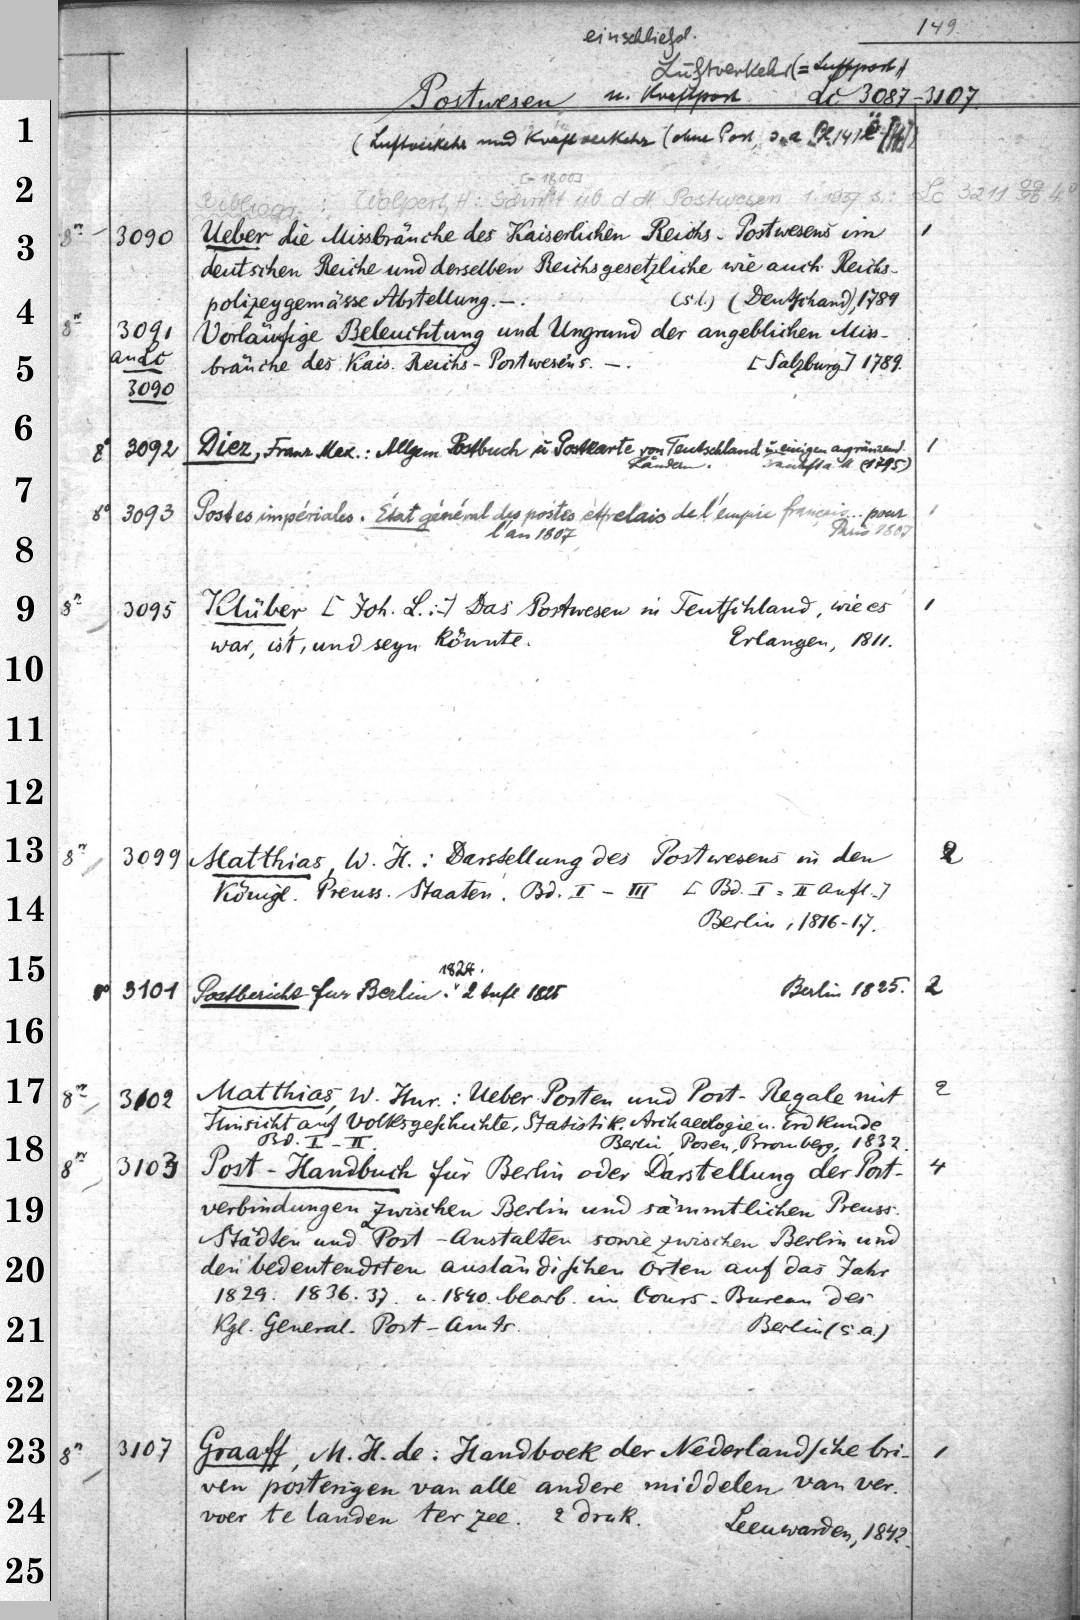 149.
einschließl.
Luftverkehr (= Luftpost)
Postwesen u. Kraftpost Lc 3087-3107
(Luftverkehr und Kraftverkehr (ohne Post, s. a.
[-1800]
Bibliogr.: Wolpert, H: Schrift. üb. d. dt. Postwesen 1. 1937 s.: Lc 3211 4°
8° 3090 Ueber die Missbräuche des Kaiserlichen Reichs-Postwesens im 1
deutschen Reiche und derselben Reichsgesetzliche wie auch Reichs-
polizeygemässe Abstellung. —. (s.l.) (Deutschand), 1789
8° 3091 Vorläufige Beleuchtung und Ungrund der angeblichen Miss-
an Lc bräuche des Kais. Reichs-Postwesens. —. [Salzburg] 1789.
3090
8° 3092 Diez, Franz Max.: Allgem. Postbuch u. Postkarte von Teutschland u. einigen angränzend. 1
Ländern. (1795)
8° 3093 Postes impériales. État général des postes et relais de l'empire français... pour 1
l'an 1807 Paris 1807
8° 3095 Klüber [Joh. L.:-] Das Postwesen in Teutschland, wie es 1
war, ist, und seyn könnte. Erlangen, 1811.
8° 3099 Matthias, W. H.: Darstellung des Postwesens in den 2
Königl. Preuss. Staaten. Bd. I - III [Bd. I = II Aufl.]
Berlin, 1816-17.
1824.
8° 3101 Postbericht für Berlin. 2 Aufl 1825 Berlin 1825. 2
8° 3102 Matthias, W. Hnr.: Ueber Posten und Post-Regale mit 2
Hinsicht auf Volksgeschichte, Statistik, Archaeologie u. Erdkunde
Bd. I - II. Berlin, Posen, Bromberg, 1832.
8° 3103 Post-Handbuch für Berlin oder Darstellung der Post- 4
verbindungen zwischen Berlin und sämmtlichen Preuss.
Städten und Post-Anstalten sowie zwischen Berlin und
den bedeutendsten ausländischen Orten auf das Jahr
1829. 1836. 37. u. 1840. bearb. im Cours-Bureau des
Kgl. General-Post-Amts. Berlin (s.a.)
8° 3107 Graaff, M. H. de: Handboek der Nederlandsche bri- 1
ven posterijen van alle andere middelen van ver.
voer te landen ter zee. 2 druk. Leeuwarden, 1842.
1
2
3
4
5
6
7
8
9
10
11
12
13
14
15
16
17
18
19
20
21
22
23
24
25